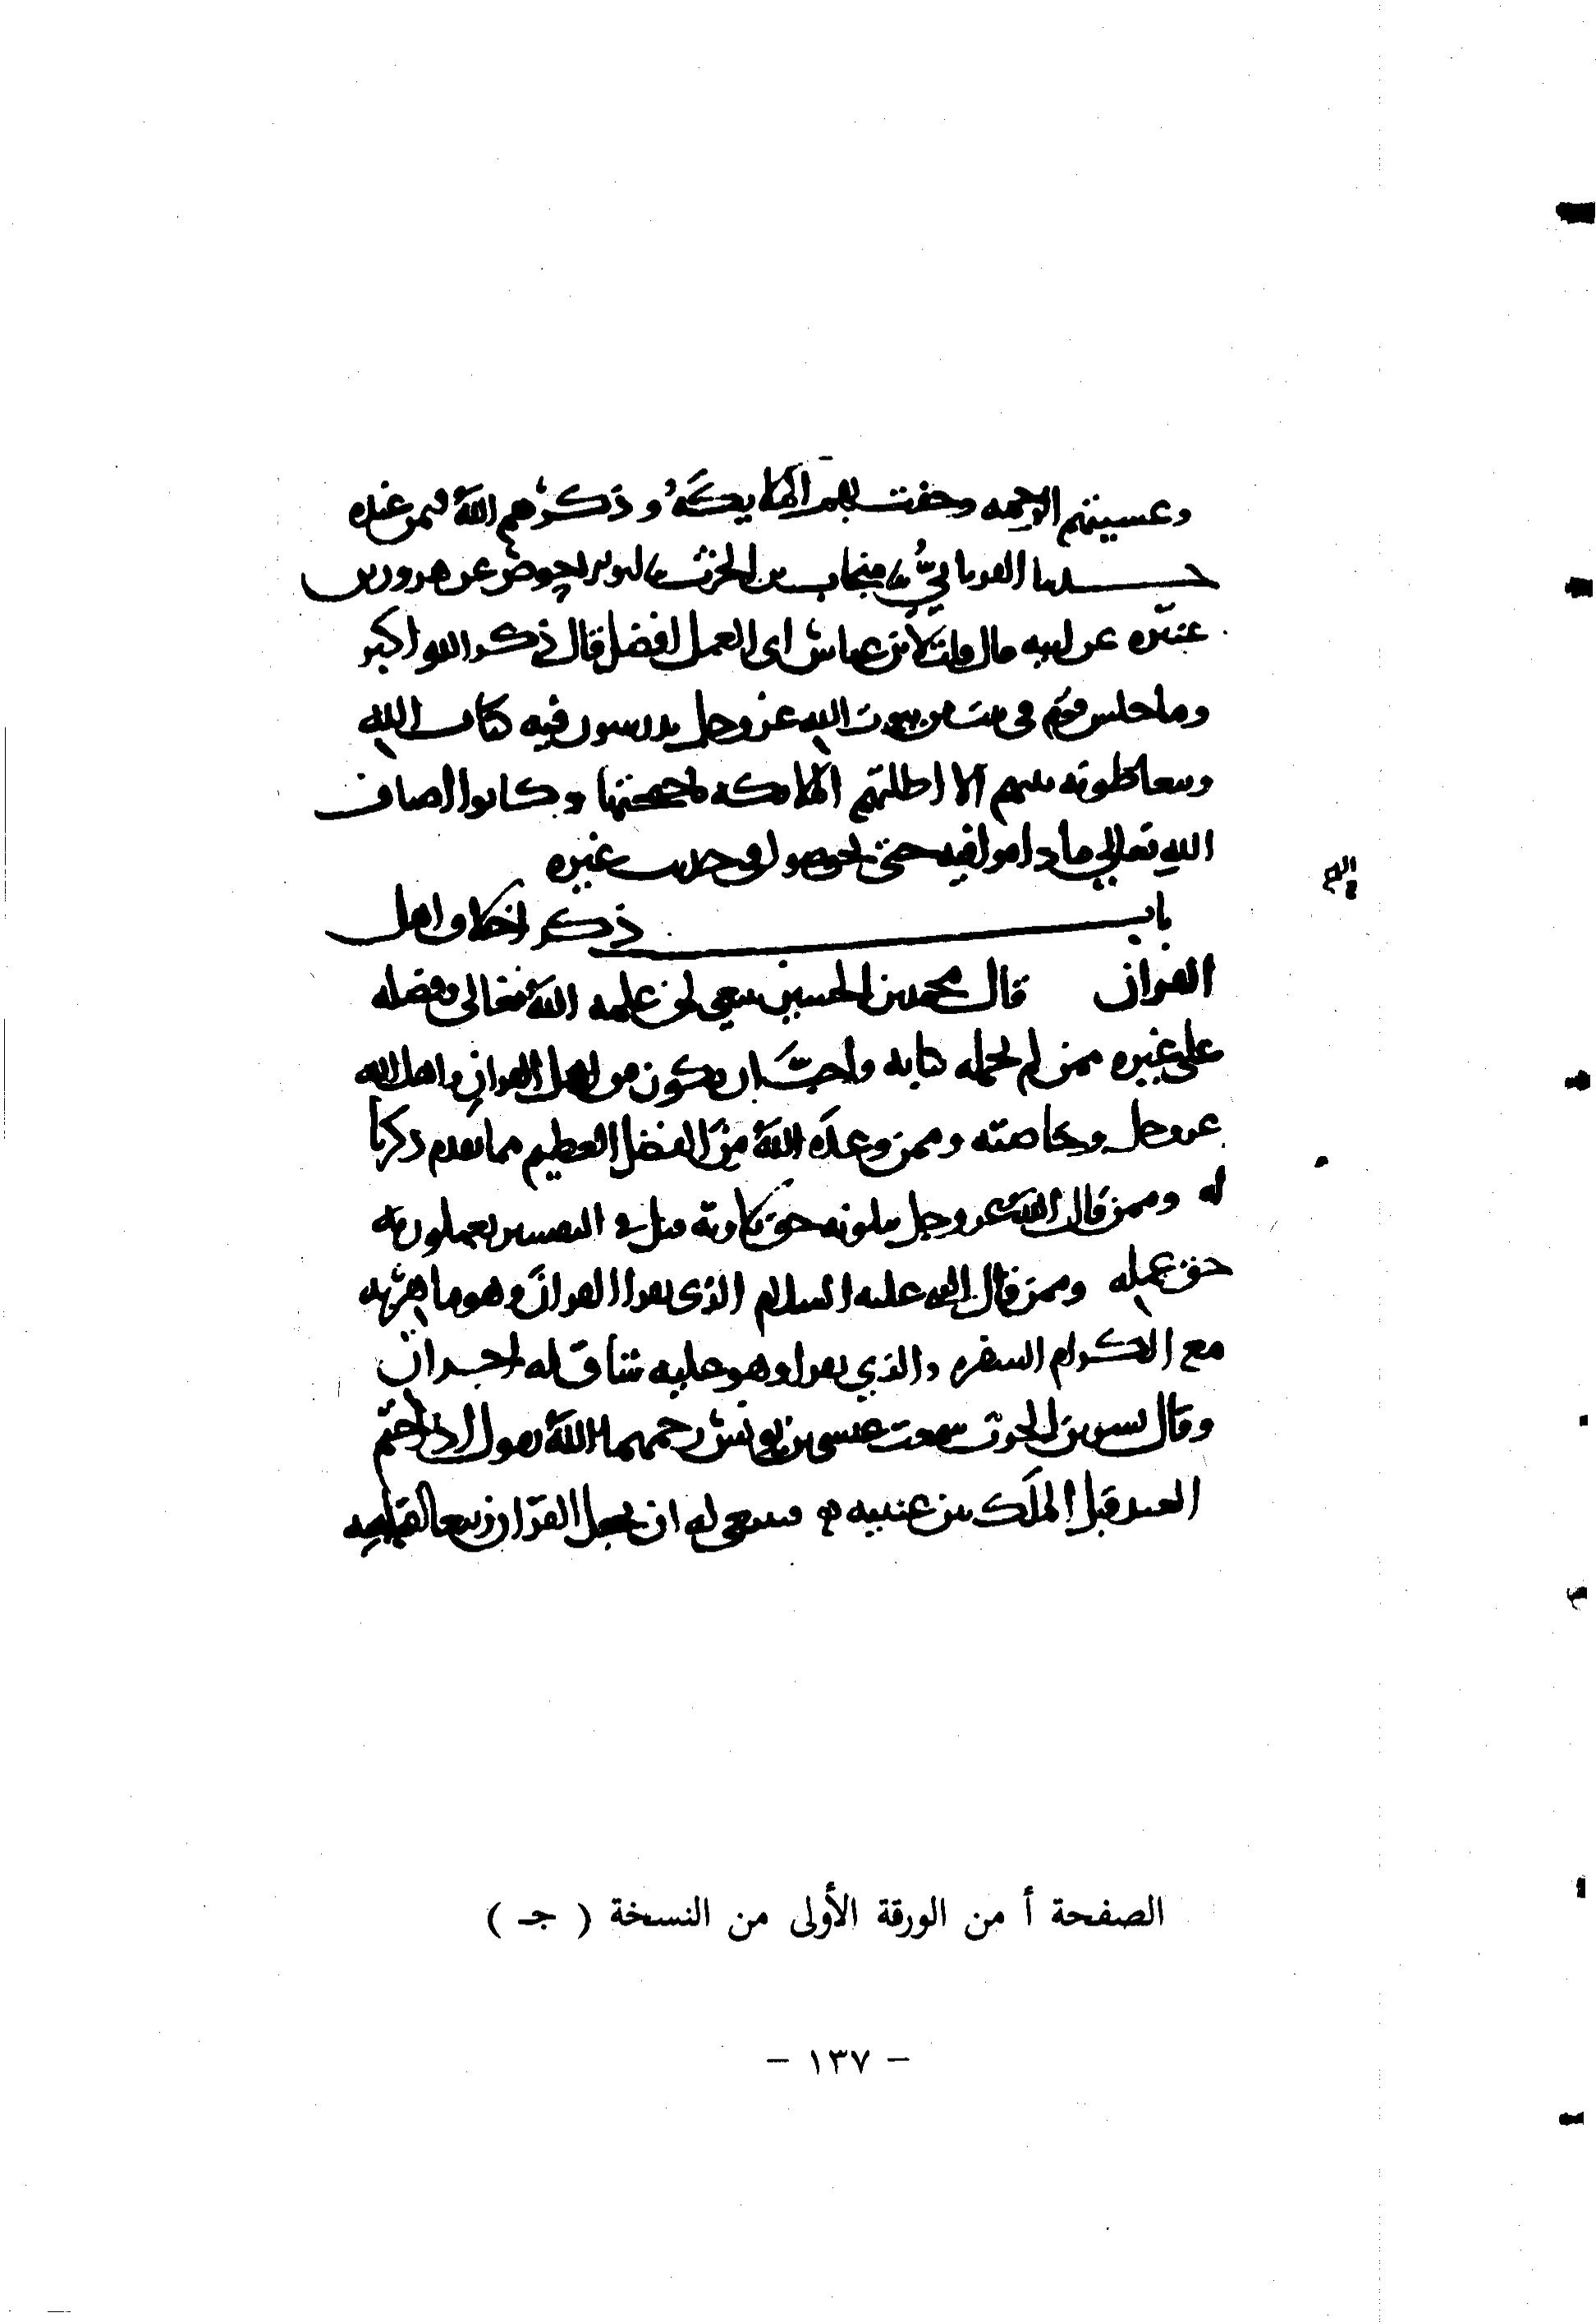 وغشيتهم الرحمه وحفت بهم الملايكة وذكرهم الله فيمن عنده
حدثنا الفريابي نا منجاب بن الحرث نا ابو الاحوص عن هرون بن
عنتره عن ابيه قال قلت لابن عباس اى العمل افضل قال ذكر الله اكبر
وما جلس قوم فى بيت من بيوت الله عز وجل يدرسون فيه كتاب الله
ويتعاطونه بينهم الا اظلتهم الملائكه باجنحتها وكانوا اضياف
الله تعالي ما داموا فيه حتى يخوضوا فى حديث غيره
باب ذكر اخلاق اهل
القران قال محمد بن الحسين ينبغي لمن علمه الله تعالى وفضله
على غيره ممن لم يحمله كتابه واحب ان يكون من اهل القران واهل الله
عز وجل وخاصته وممن وعده الله من الفضل العظيم مما تقدم ذكرنا
له وممن قال الله عز وجل يتلونه حق تلاوته قيل في التفسير يعملون به
حق عمله وممن قال النبي عليه السلام الذى يقرا القران وهو ماهر به
مع الكرام السفره والذي يقرا وهو عليه شاق له اجران
وقال بشر بن الحرث سمعت عيسى بن يونس رحمهما الله يقول اذا ختم
العبد قبل الملك بين عينيه فينبغي له ان يجعل القرآن ربيعا لقلبه
الصفحة أ من الورقة الأولى من النسخة ( جـ )
– ١٣٧ –